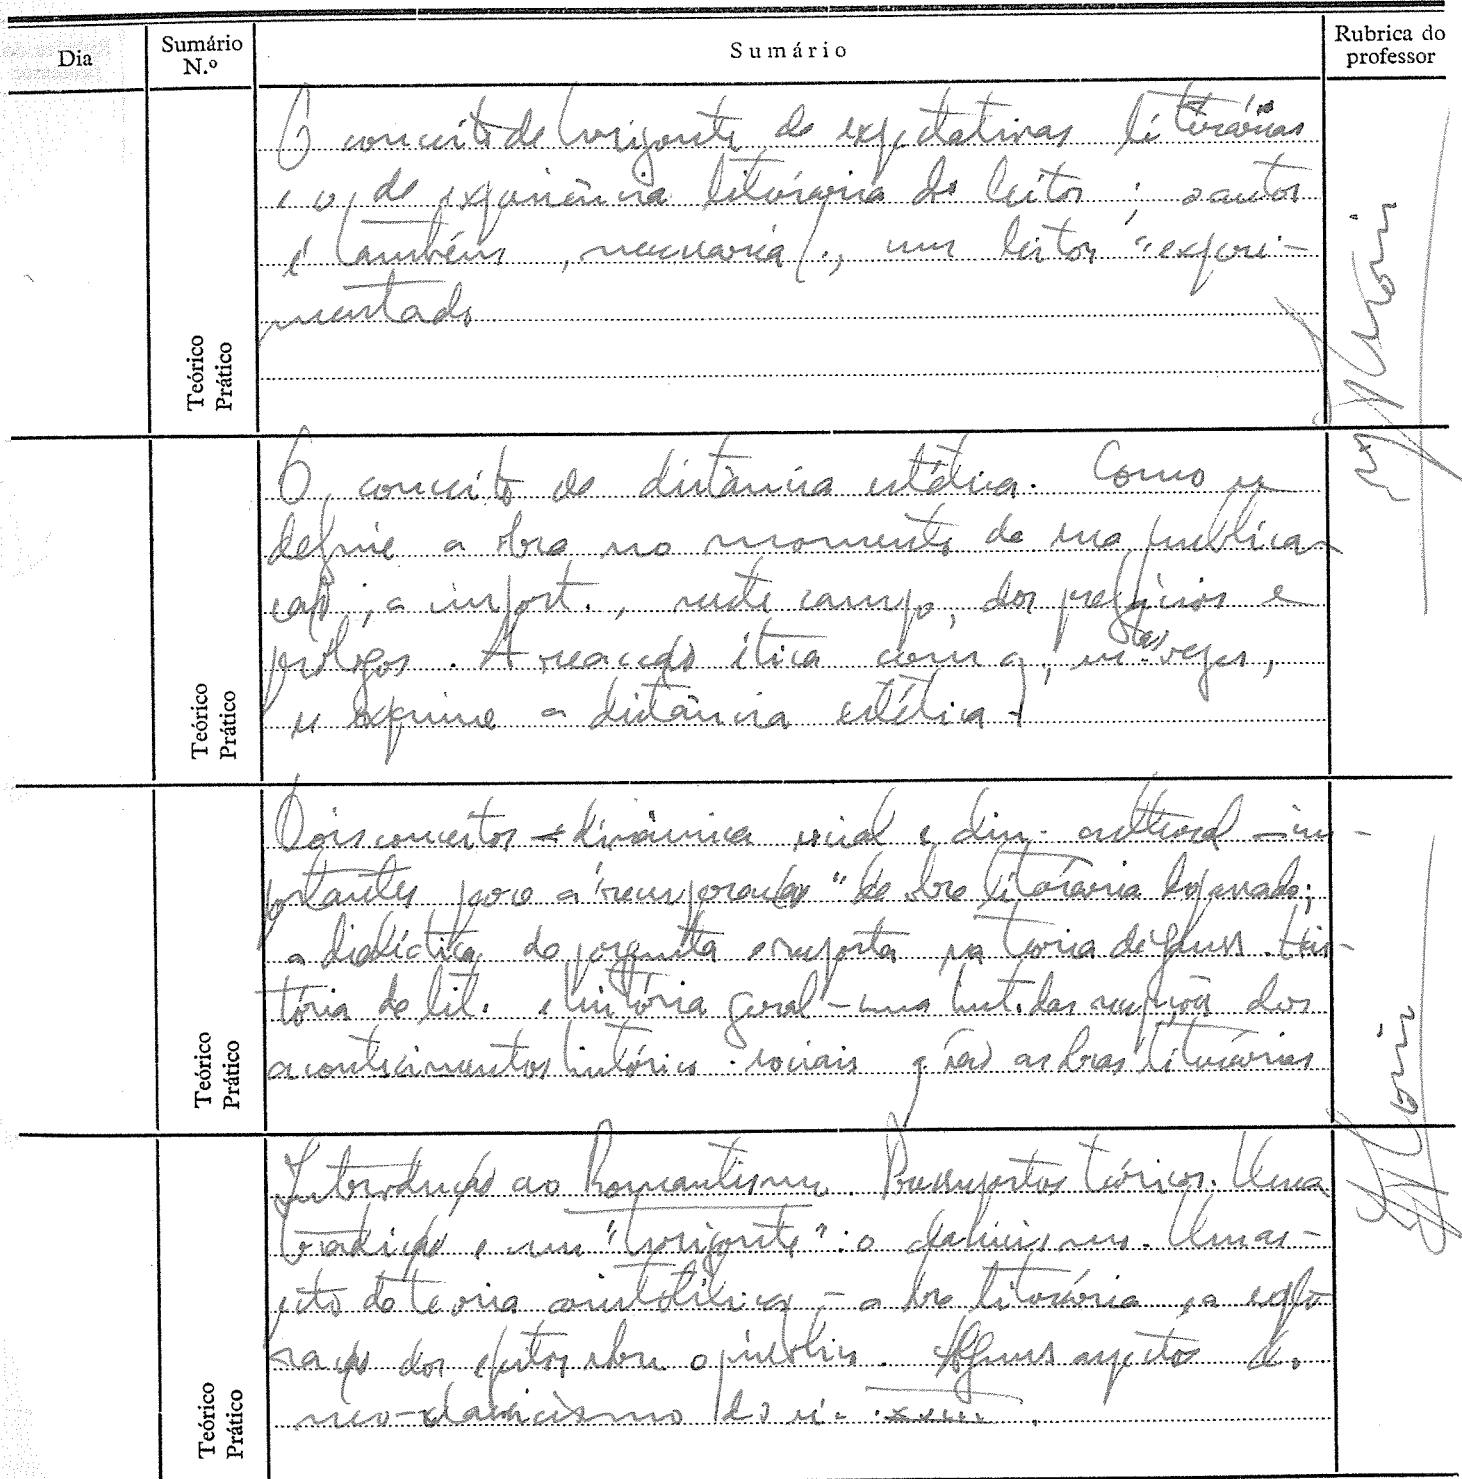 Dia
Sumário N.º
Sumário
Rubrica do professor
O conceito de horizonte de expectativas literárias
e o de experiência literária do leitor; o autor
é também, necessaria/., um leitor "experi-
mentado
Teórico
Prático
O conceito de distância estética. Como se
define a obra no momento da sua publica-
ção; a import., neste campo, dos prefácios e
prólogos. A reacção ética com q, às vezes,
se exprime a distância estética
Teórico
Prático
Dois conceitos - dinâmica social e din. cultural - im-
portantes para a "recuperação" da obra literária do passado;
a dialéctica da pergunta e resposta na teoria de Jauss. His-
tória da lit. e história geral - uma hist. das recepções dos
acontecimentos histórico-sociais q são as obras literárias
Teórico
Prático
Introdução ao Romantismo. Pressupostos teóricos. Uma
tradição e um "horizonte": o classicismo. Um as-
pecto da teoria aristotélica - a obra literária e a explo-
ração dos efeitos sobre o público. Alguns aspectos do
neo-classicismo do séc. XVIII.
Teórico
Prático